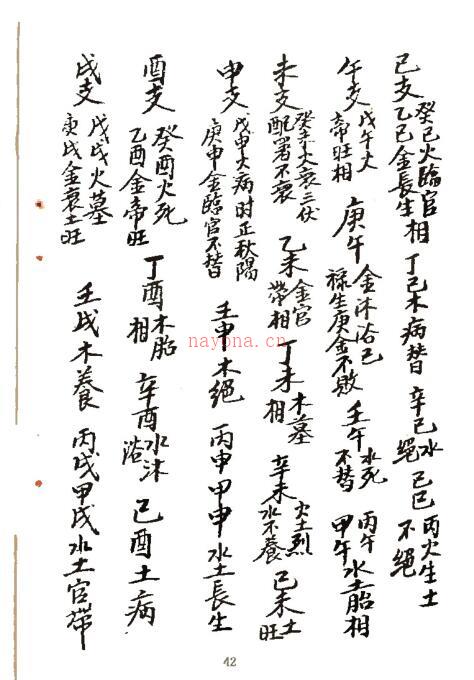 巳支 癸巳火臨官 丁巳木病替 辛巳水 丙火生土
乙巳金長生相 絕 己巳不絕
午支 戊午火 庚午 金沐浴己 壬午 水死 丙午
帝旺相 祿生庚金不敗 不替 甲午水土胎相
未支 癸未火衰三伏 乙未金官 丁未木墓 辛未火土烈
配署不衰 帶相 相 水不養 己未土旺
申支 戊申火病时正秋陽 壬申木絕 丙申甲申水土長生
庚申金臨官不替
酉支 癸酉火死 丁酉木胎 辛酉水沐 己酉土病
乙酉金帝旺 相 浴
戌支 戊戌火墓 壬戌木養 丙戌甲戌水土官帶
庚戌金衰土旺
nayona.cn
42